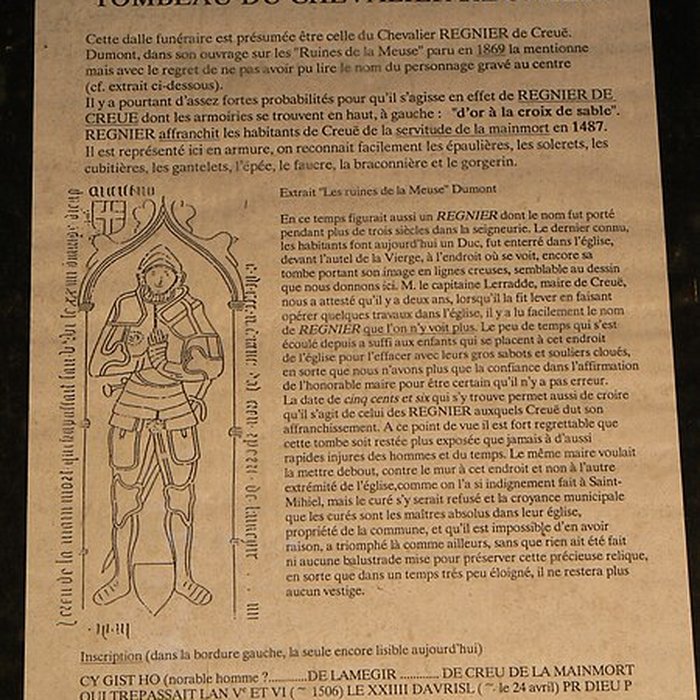 TOMBEAU DU CHEVALIER
Cette dalle funéraire est présumée être celle du Chevalier REGNIER de Creuë.
Dumont, dans son ouvrage sur les "Ruines de la Meuse" paru en 1869 la mentionne
mais avec le regret de ne pas avoir pu lire le nom du personnage gravé au centre
(cf. extrait ci-dessous).
Il y a pourtant d'assez fortes probabilités pour qu'il s'agisse en effet de REGNIER DE
CREUE dont les armoiries se trouvent en haut, à gauche : "d'or à la croix de sable".
REGNIER affranchit les habitants de Creuë de la servitude de la mainmort en 1487.
Il est représenté ici en armure, on reconnait facilement les épaulières, les solerets, les
cubitières, les gantelets, l'épée, le faucre, la braconnière et le gorgerin.
Extrait "Les ruines de la Meuse" Dumont
En ce temps figurait aussi un REGNIER dont le nom fut porté
pendant plus de trois siècles dans la seigneurie. Le dernier connu,
les habitants font aujourd'hui un Duc, fut enterré dans l'église,
devant l'autel de la Vierge, à l'endroit où se voit, encore sa
tombe portant son image en lignes creuses, semblable au dessin
que nous donnons ici. M. le capitaine Lerradde, maire de Creuë,
nous a attesté qu'il y a deux ans, lorsqu'il la fit lever en faisant
opérer quelques travaux dans l'église, il y a lu facilement le nom
de REGNIER que l'on n'y voit plus. Le peu de temps qui s'est
écoulé depuis a suffi aux enfants qui se placent à cet endroit
de l'église pour l'effacer avec leurs gros sabots et souliers cloués,
en sorte que nous n'avons plus que la confiance dans l'affirmation
de l'honorable maire pour être certain qu'il n'y a pas erreur.
La date de cinq cents et six qui s'y trouve permet aussi de croire
qu'il s'agit de celui des REGNIER auxquels Creuë dut son
affranchissement. A ce point de vue il est fort regrettable que
cette tombe soit restée plus exposée que jamais à d'aussi
rapides injures des hommes et du temps. Le même maire voulait
la mettre debout, contre le mur à cet endroit et non à l'autre
extrémité de l'église,comme on l'a si indignement fait à Saint-
Mihiel, mais le curé s'y serait refusé et la croyance municipale
que les curés sont les maîtres absolus dans leur église,
propriété de la commune, et qu'il est impossible d'en avoir
raison, a triomphé là comme ailleurs, sans que rien ait été fait
ni aucune balustrade mise pour préserver cette précieuse relique,
en sorte que dans un temps très peu éloigné, il ne restera plus
aucun vestige.
Inscription (dans la bordure gauche, la seule encore lisible aujourd'hui)
CY GIST HO (norable homme ?...........DE LAMEGIR ........... DE CREU DE LA MAINMORT
QUI TREPASSAIT LAN Vᵉ ET VI (~ 1506) LE XXIIII DAVRISL (~. le 24 avril) PR DIEU P